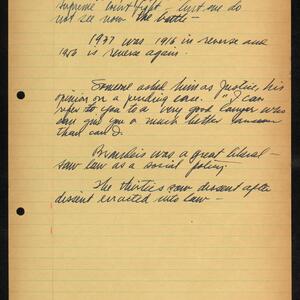 Supreme Court fight - but we do
not see now the battle -
1937 was 1916 in reverse and
1950 is reverse again.
Someone asked him as Justice, his
opinion on a pending case. "I can
refer you to a very good lawyer who
can give you a much better answer
than can I.
Brandeis was a great liberal -
saw law as a social policy.
The thirties saw dissent after
dissent enacted into law -